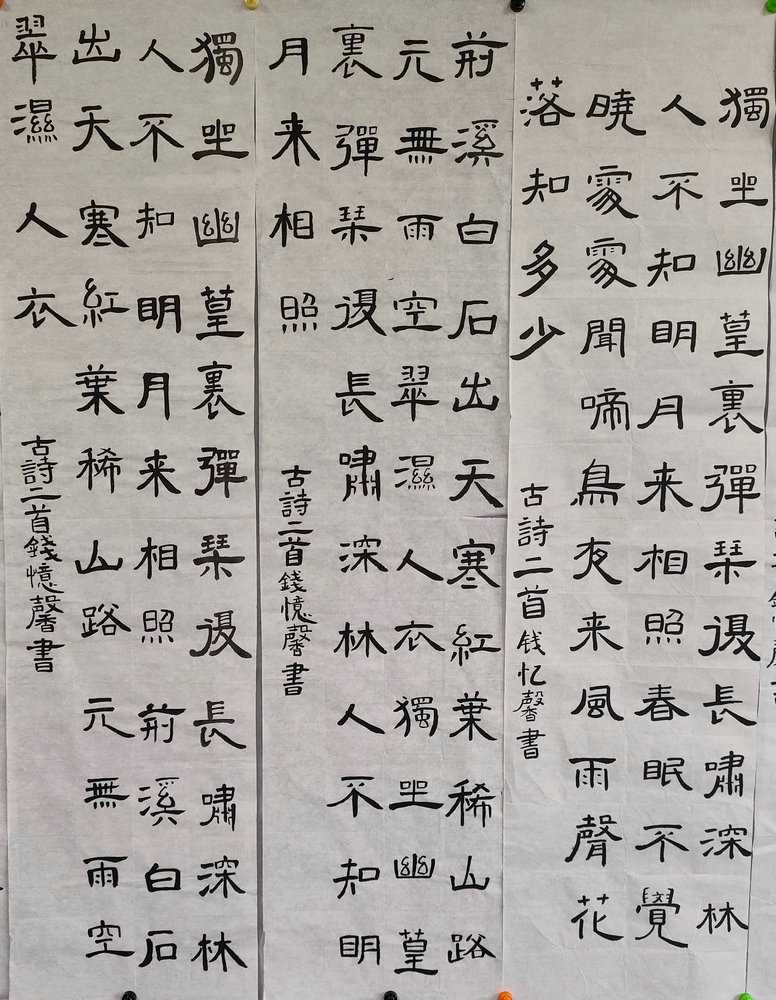 獨坐幽篁裏彈琴復長嘯深林
人不知明月来相照春眠不覺
曉處處聞啼鳥夜来風雨聲花
落知多少
古詩二首钱忆馨書
荊溪白石出天寒紅葉稀山路
元無雨空翠濕人衣獨坐幽篁
裏彈琴復長嘯深林人不知明
月来相照
古詩二首錢憶馨書
獨坐幽篁裏彈琴復長嘯深林
人不知明月来相照荊溪白石
出天寒紅葉稀山路元無雨空
翠濕人衣
古詩二首錢憶馨書